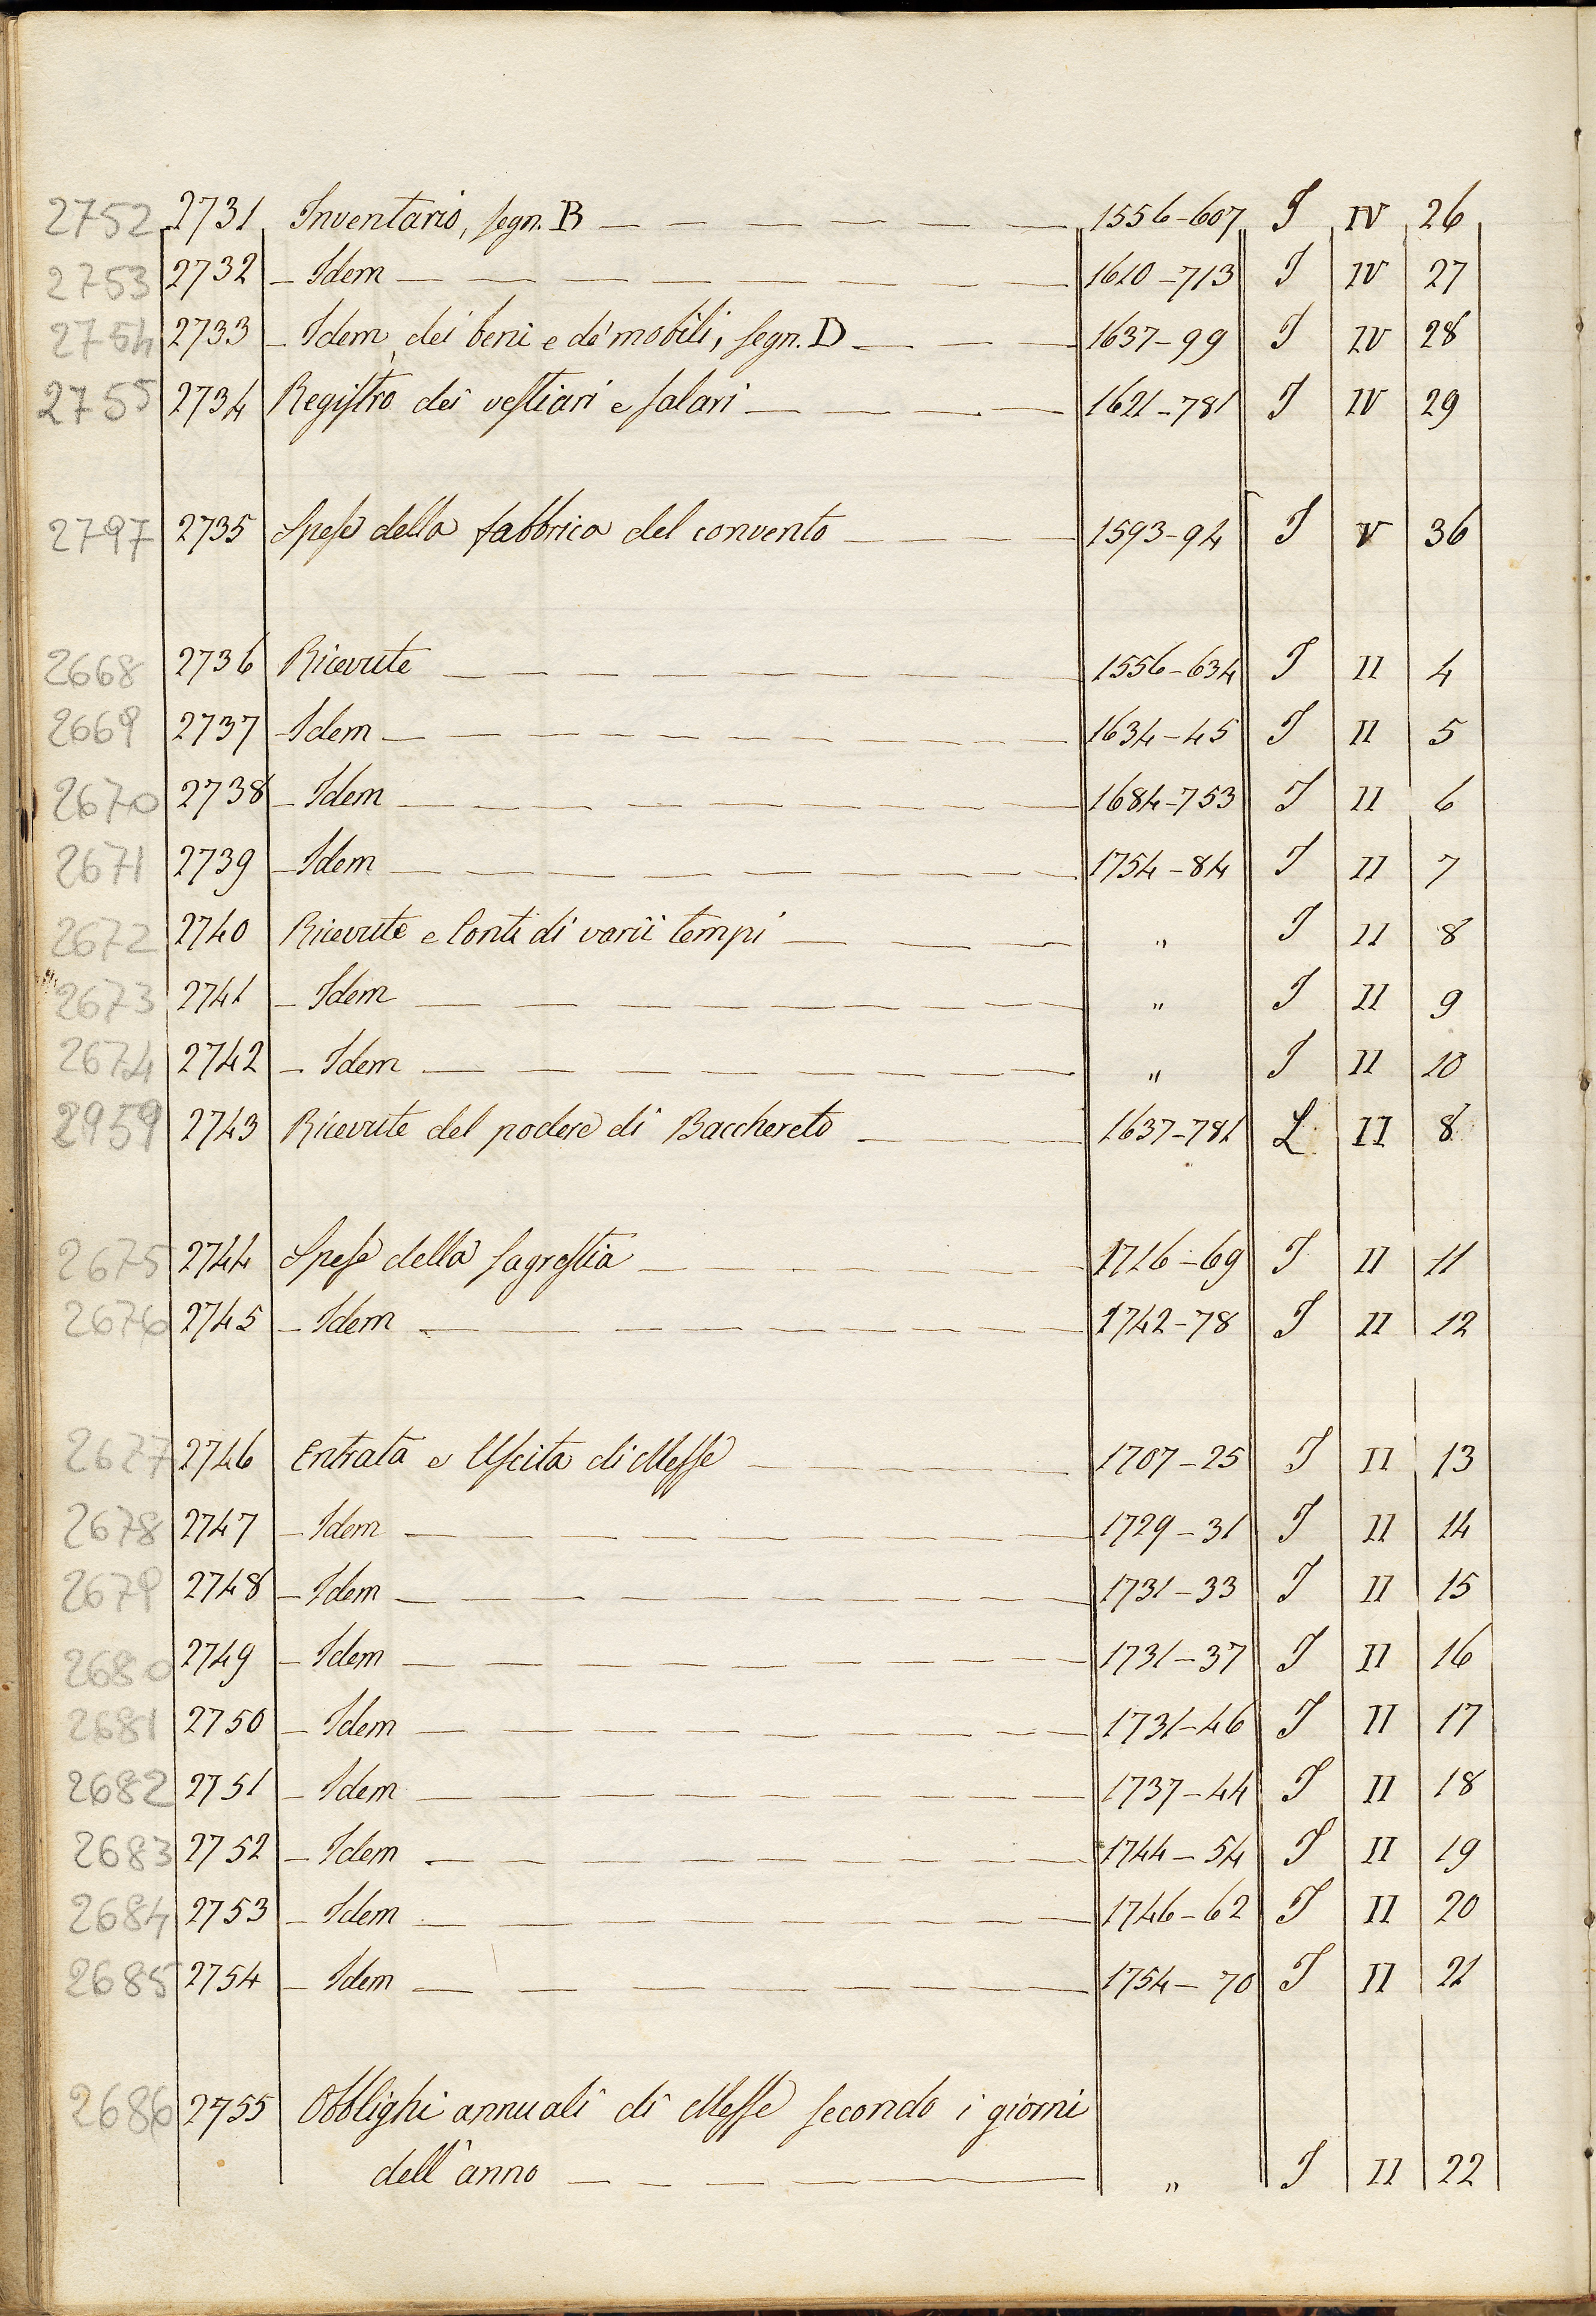 2752 2731 Inventario, segn. B 1556-607 I IV 26
2753 2732 - Idem 1610-713 I IV 27
2754 2733 - Idem, dei beni e de' mobili, segn. D 1637-99 I IV 28
2755 2734 Registro dei vestiari e salari 1621-781 I IV 29
2797 2735 Spese della fabbrica del convento 1593-94 I V 36
2668 2736 Ricevute 1556-634 I II 4
2669 2737 - Idem 1634-45 I II 5
2670 2738 - Idem 1684-753 I II 6
2671 2739 - Idem 1754-84 I II 7
2672 2740 Ricevute e Conti di varii tempi " I II 8
2673 2741 - Idem " I II 9
2674 2742 - Idem " I II 10
2959 2743 Ricevute del podere di Bacchereto 1637-781 L II 8
2675 2744 Spese della sagrestia 1716-69 I II 11
2676 2745 - Idem 1742-78 I II 12
2677 2746 Entrata e Uscita di Messe 1707-25 I II 13
2678 2747 - Idem 1729-31 I II 14
2679 2748 - Idem 1731-33 I II 15
2680 2749 - Idem 1731-37 I II 16
2681 2750 - Idem 1731-46 I II 17
2682 2751 - Idem 1737-44 I II 18
2683 2752 - Idem 1744-54 I II 19
2684 2753 - Idem 1746-62 I II 20
2685 2754 - Idem 1754-70 I II 21
2686 2755 Obblighi annuali di Messe secondo i giorni
dell'anno " I II 22